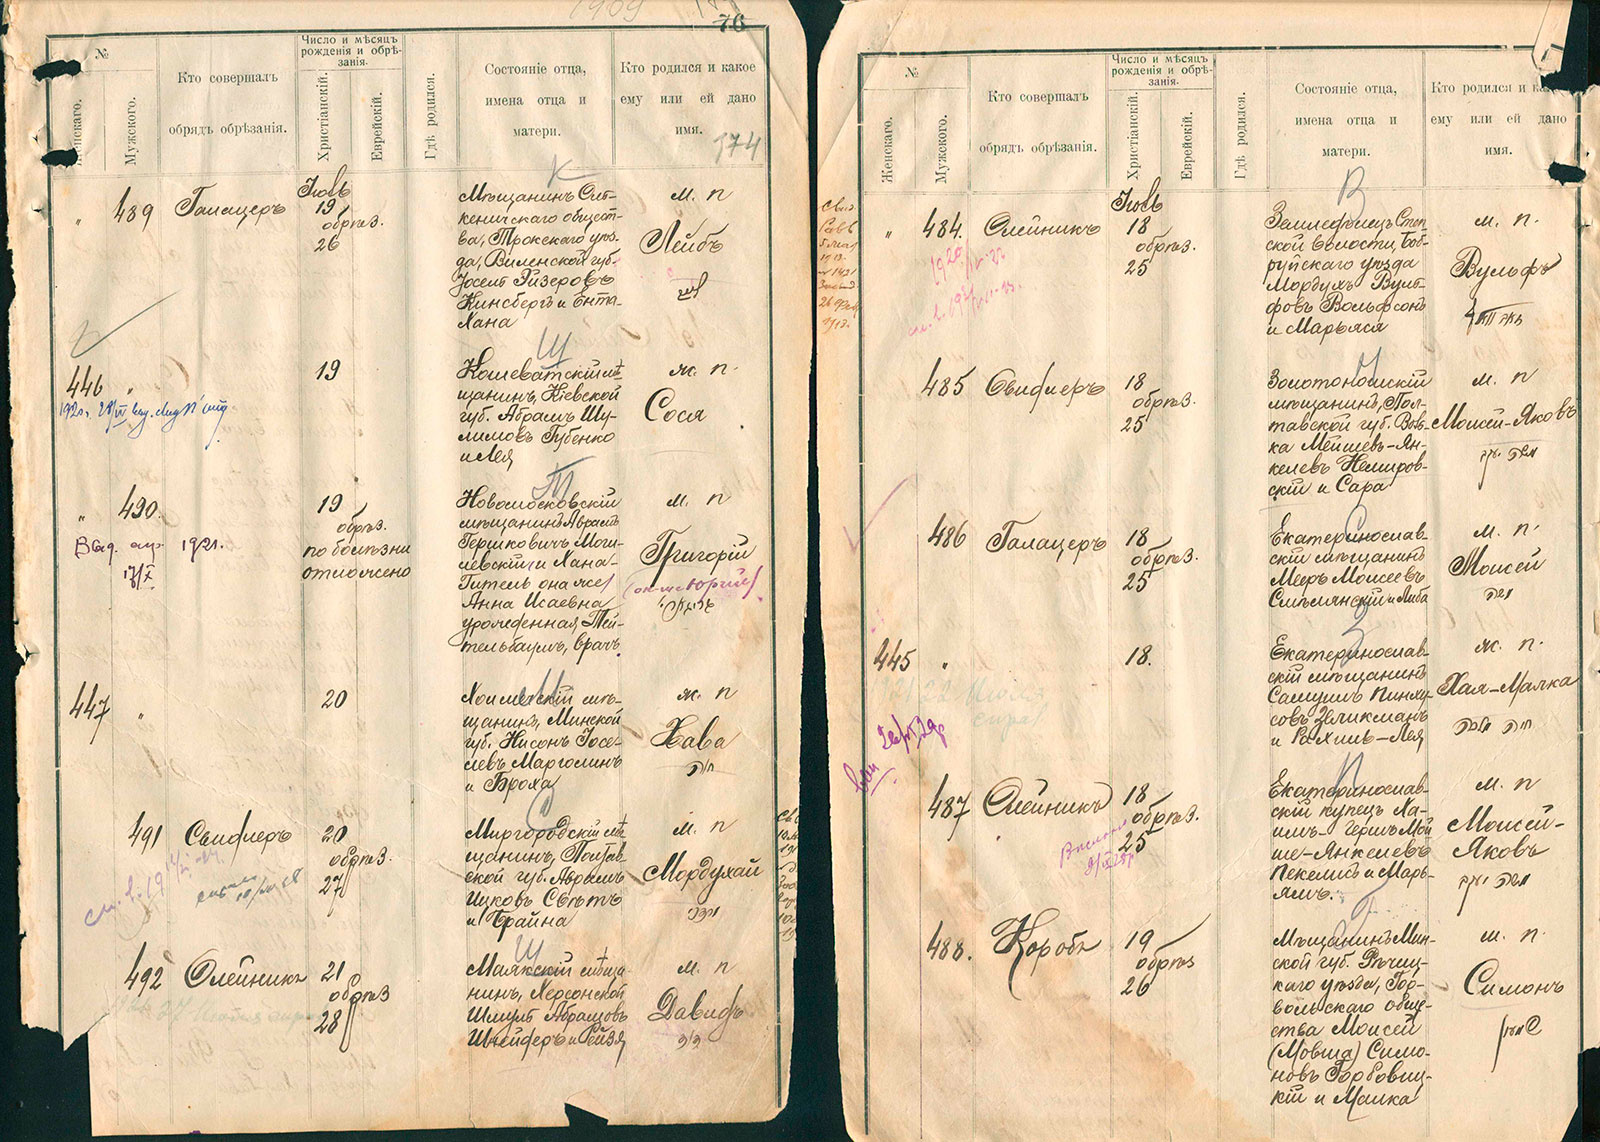 1909
76
№
Женскаго.
Мужского.
Кто совершалъ
обрядъ обрѣзанія.
Число и мѣсяцъ
рожденія и обрѣ-
занія.
Христіанскій.
Еврейскій.
Гдѣ родился.
Состояніе отца,
имена отца и
матери.
Кто родился и какое
ему или ей дано
имя.
174
К
"
489
Галацеръ
Іюль
19
обрѣз.
26
Мѣщанинъ
кеничскаго общест-
ва, Трокскаго уѣз-
да, Виленской губ.
Іосель Гизеровъ
Кинсбергъ и Ента-
Хана
м. п
Лейбъ
לייב
Ш
446
"
1921
19
Кошеватскій мѣ-
щанинъ, Кіевской
губ. Абрамъ Шу-
лимовъ Губенко
и Лея
ж. п.
Сося
Т
"
490.
1921.
17/X
19
обрѣз.
по болѣзни
отложено
Новомосковскій
мѣщанинъ Абрамъ
Гершковичъ Моги-
левскій и Хана-
Гитель она же
Анна Исаевна
урожденная Тей-
тельбаумъ, врачъ.
м. п
Григорій
(он-же Юрій)
447
"
20
мѣ-
щанинъ, Минской
губ. Нисонъ Іосе-
левъ Марголинъ
и Броха
ж. п
Хава
חוה
С
491
Свифлеръ
20
обрѣз.
27
Миргородскій мѣ-
щанинъ, Полтав-
ской губ. Абрамъ
Ицковъ Свѣтъ
и Брайна
м. п
Мордухай
מרדכי
Ш
492
Олейникъ
21
обрѣз
28
Маякскій мѣща-
нинъ, Херсонской
Шмулъ Абрамовъ
Шнейферъ и Рейзя
м. п
Давидъ
דוד
№
Женскаго.
Мужского.
Кто совершалъ
обрядъ обрѣзанія.
Число и мѣсяцъ
рожденія и обрѣ-
занія.
Христіанскій.
Еврейскій.
Гдѣ родился.
Состояніе отца,
имена отца и
матери.
Кто родился и как
ему или ей дано
имя.
В
"
484.
Олейникъ
Іюль
18
обрѣз.
25
Земледѣлецъ
ской волости, Боб-
руйскаго уѣзда
Мордухъ Вуль-
фовъ Вольфсонъ
и Марьяся
м. п.
Вульфъ
485
Свифлеръ
18
обрѣз.
25
Золотоношскій
мѣщанинъ, Пол-
тавской губ. Вов-
ка Мейшевъ-Ян-
келевъ Немиров-
скій и Сара
м. п
Моисей-Яковъ
משה יעקב
486
Галацеръ
18
обрѣз.
25
Екатеринослав-
скій мѣщанинъ
Меръ Моисеевъ
Смѣлянскій и Либа
м. п.
Моисей
משה
З
445
"
18.
Екатеринослав-
скій мѣщанинъ
Самуилъ Пинху-
совъ Зеликманъ
и Рахиль-Лея
ж. п.
Хая-Малка
חיה מלכה
487
Олейникъ
18
обрѣз.
25
Екатеринослав-
скій купецъ Ха-
имъ-Гершъ Мой-
ше-Янкелевъ
Пекелисъ и Марь-
ямъ.
м. п.
Моисей-
Яковъ
משה יעקב
Г
488.
Коробъ
19
обрѣз
26
Мѣщанинъ Мин-
ской губ. Рѣчиц-
каго уѣзда, Гор-
вольскаго обще-
ства Моисей
(Мовша) Симо-
новъ Горбовиц-
кій и Малка
м. п.
Симонъ
שמעון